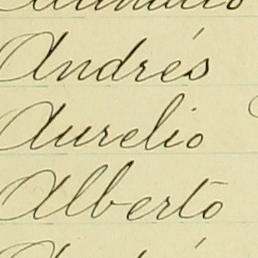 Andrés
Aurelio
Alberto